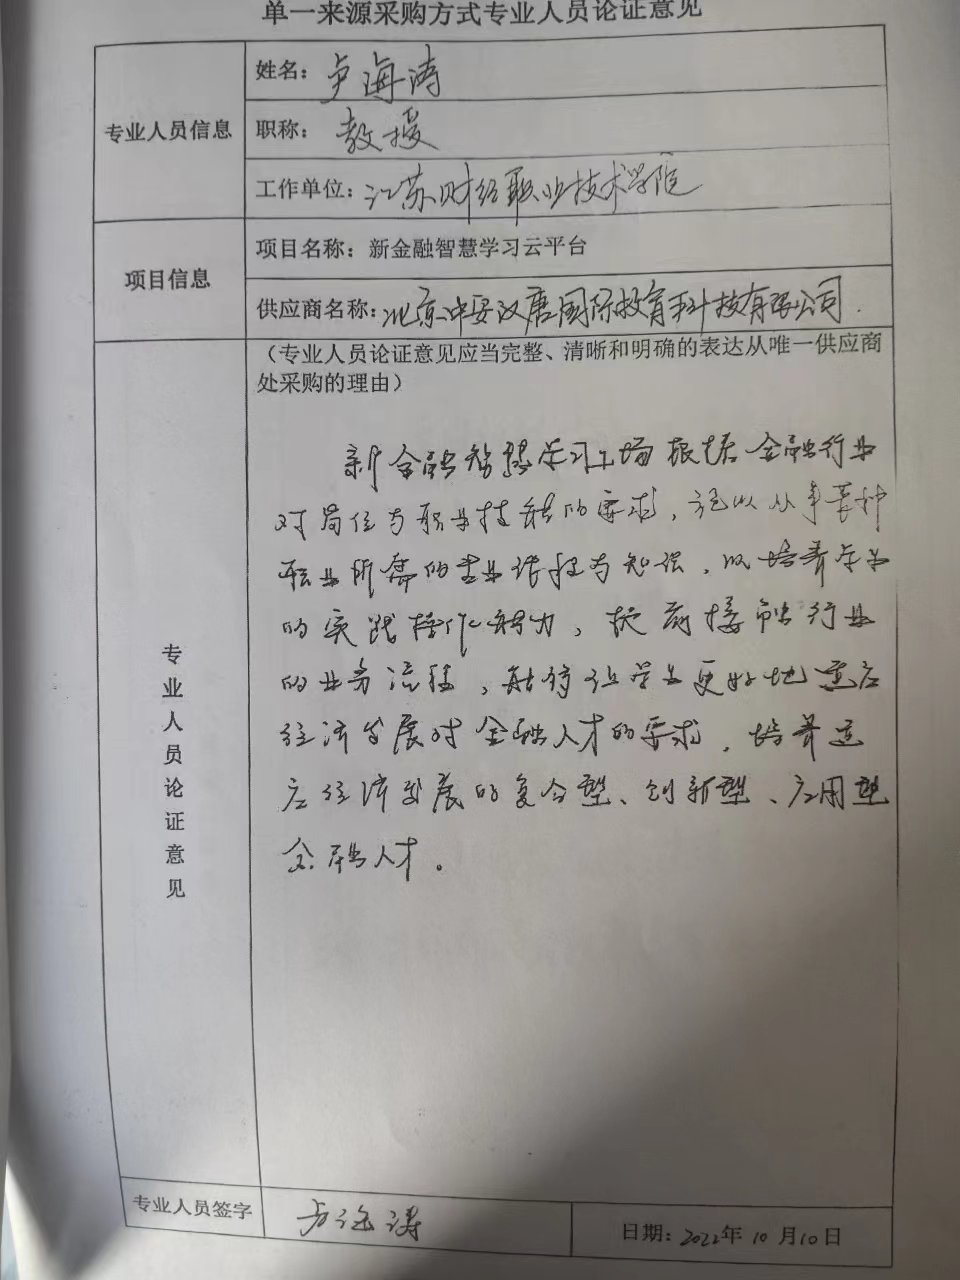 单一来源采购方式专业人员论证意见
专业人员信息
姓名：卢海涛
职称：教授
工作单位：江苏财经职业技术学院
项目信息
项目名称：新金融智慧学习云平台
供应商名称：北京中安汉唐国际教育科技有限公司.
专业人员论证意见
（专业人员论证意见应当完整、清晰和明确的表达从唯一供应商
处采购的理由）
新金融智慧学习工场根据金融行业
对岗位与职业技能的要求，可以从事某种
职业所需的专业课程与知识，以培养学生
的实践操作能力，提前接触行业
的业务流程，能够让学生更好地适应
经济发展对金融人才的要求，培养适
应经济发展的复合型、创新型、应用型
金融人才。
专业人员签字
卢海涛
日期：2022年10月10日